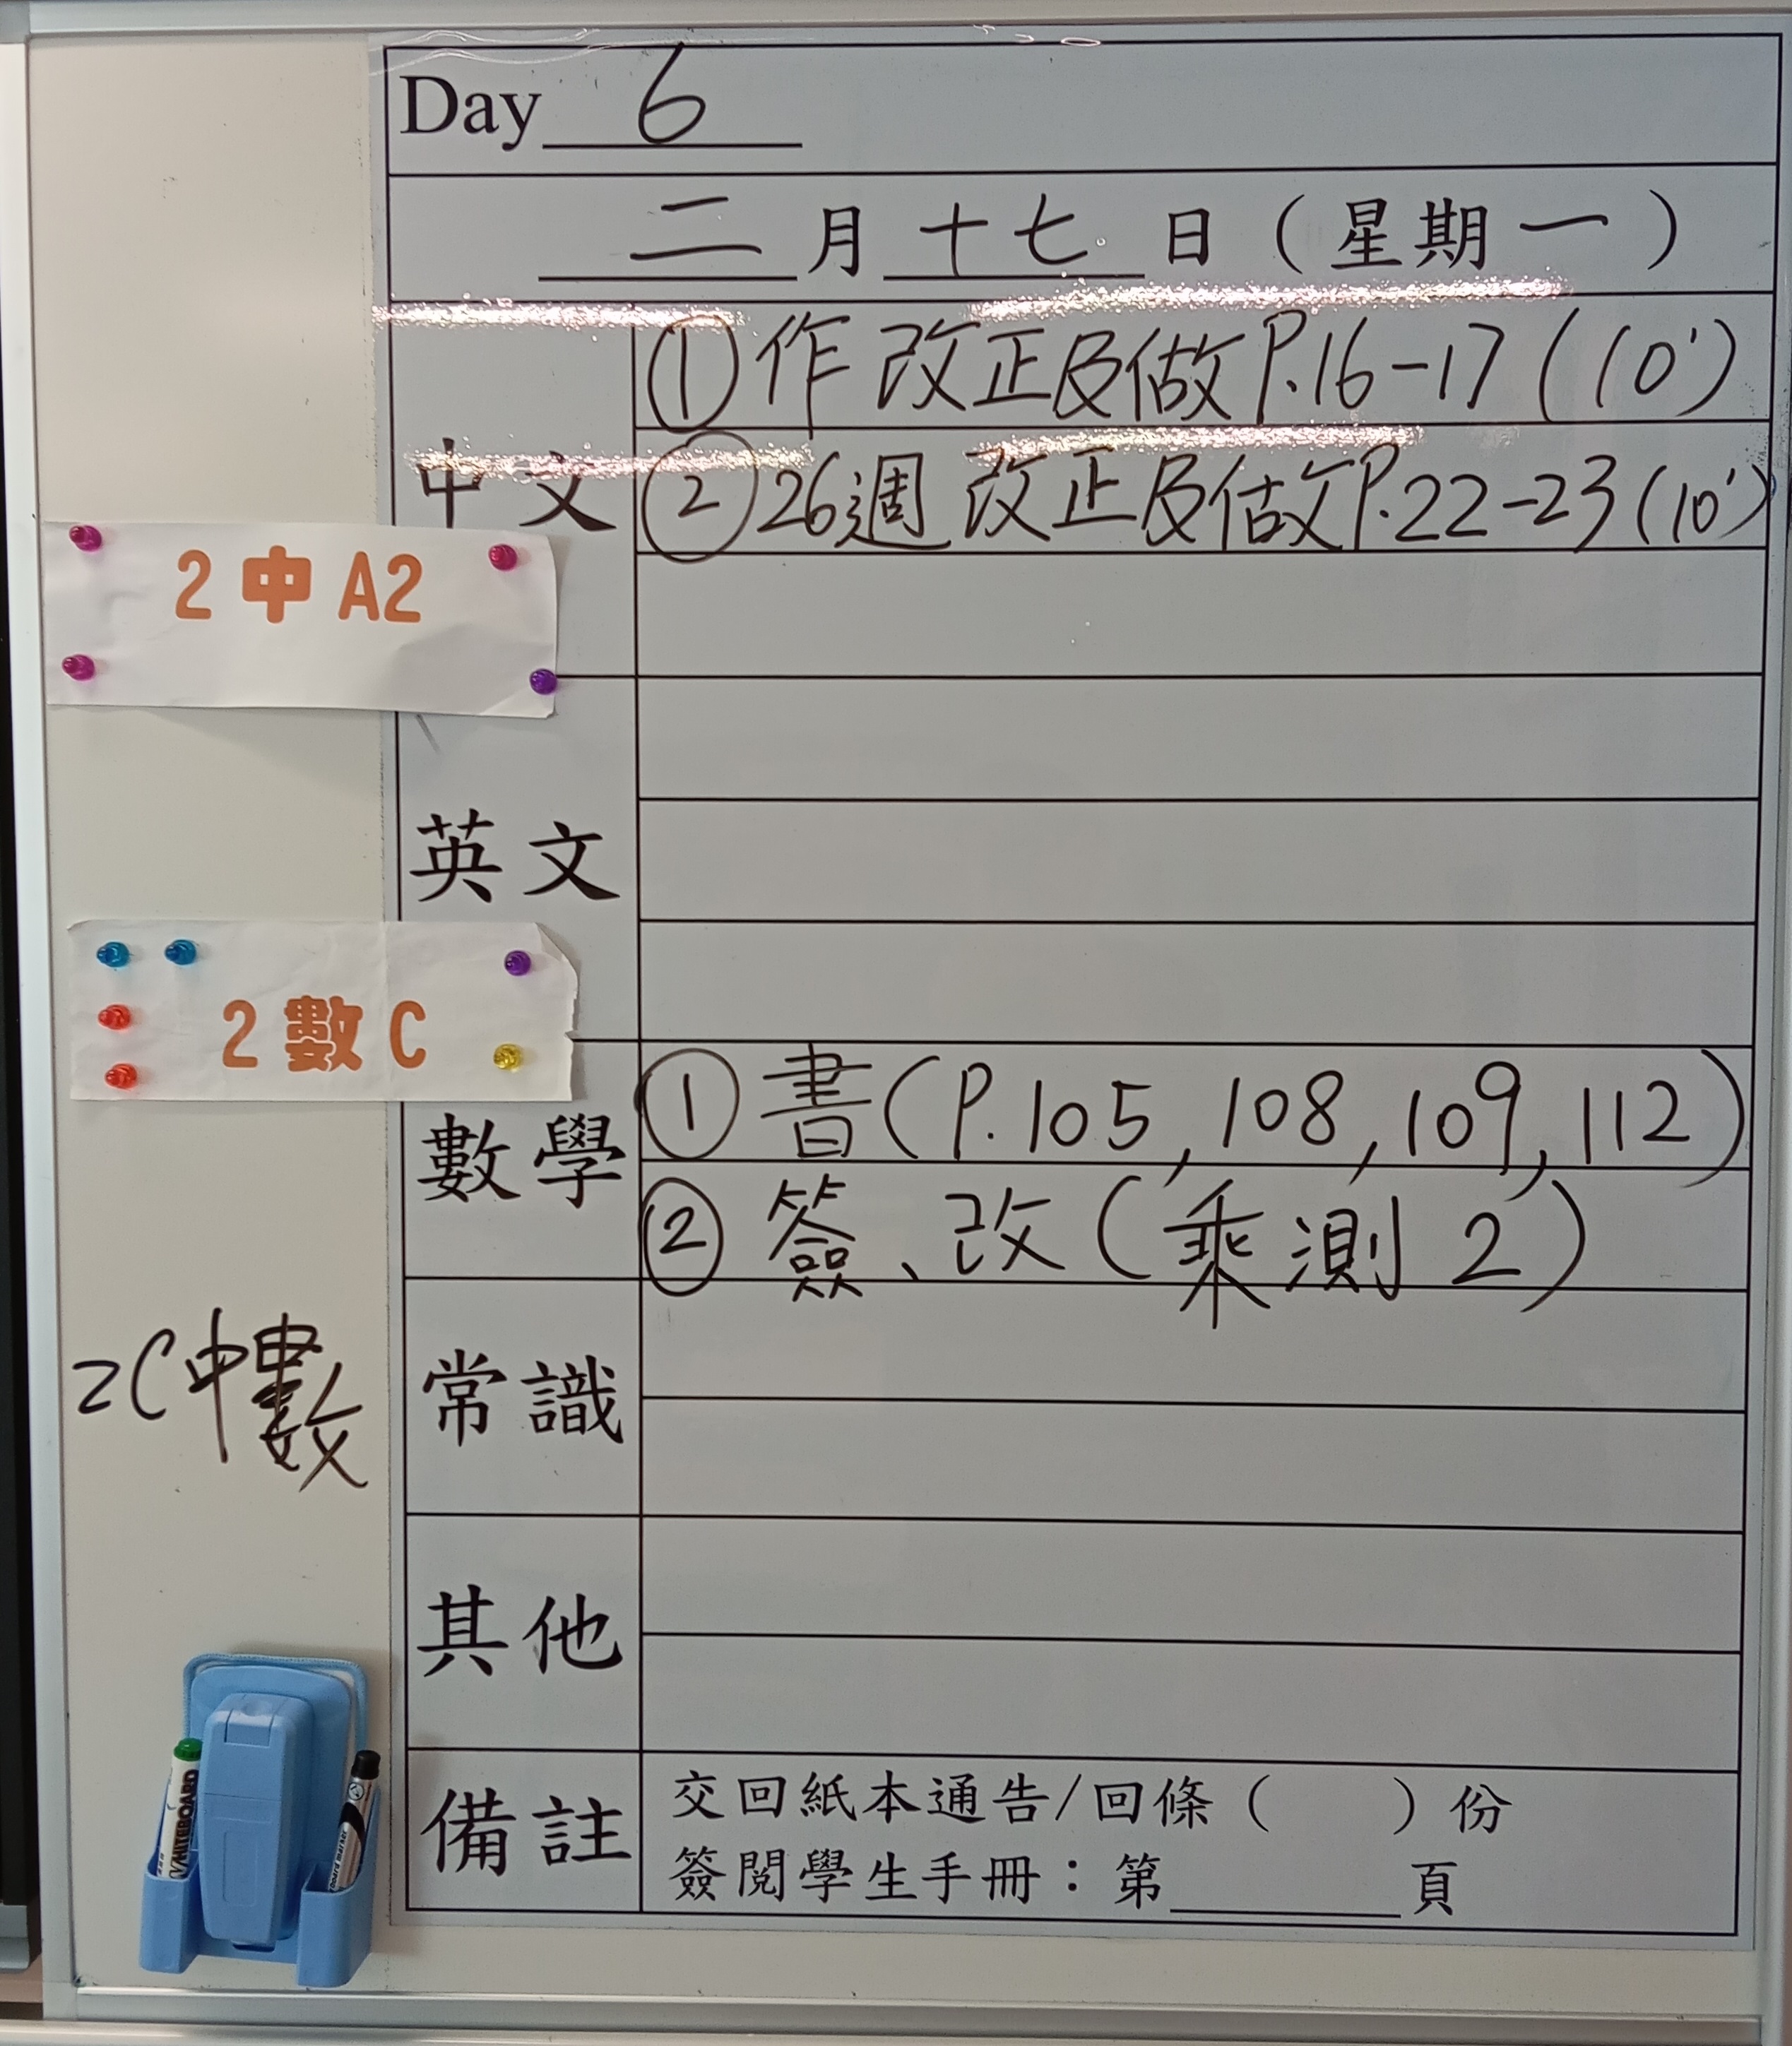 Day 6
二月十七日(星期一)
中文
①作 改正及做P.16-17(10')
②26週 改正及做P.22-23(10')
2中A2
英文
2數C
數學
①書(P.105,108,109,112)
②簽、改(乘測2)
2C中數
常識
其他
備註
交回紙本通告/回條( )份
簽閱學生手冊:第______頁
WHITEBOARD
board marker